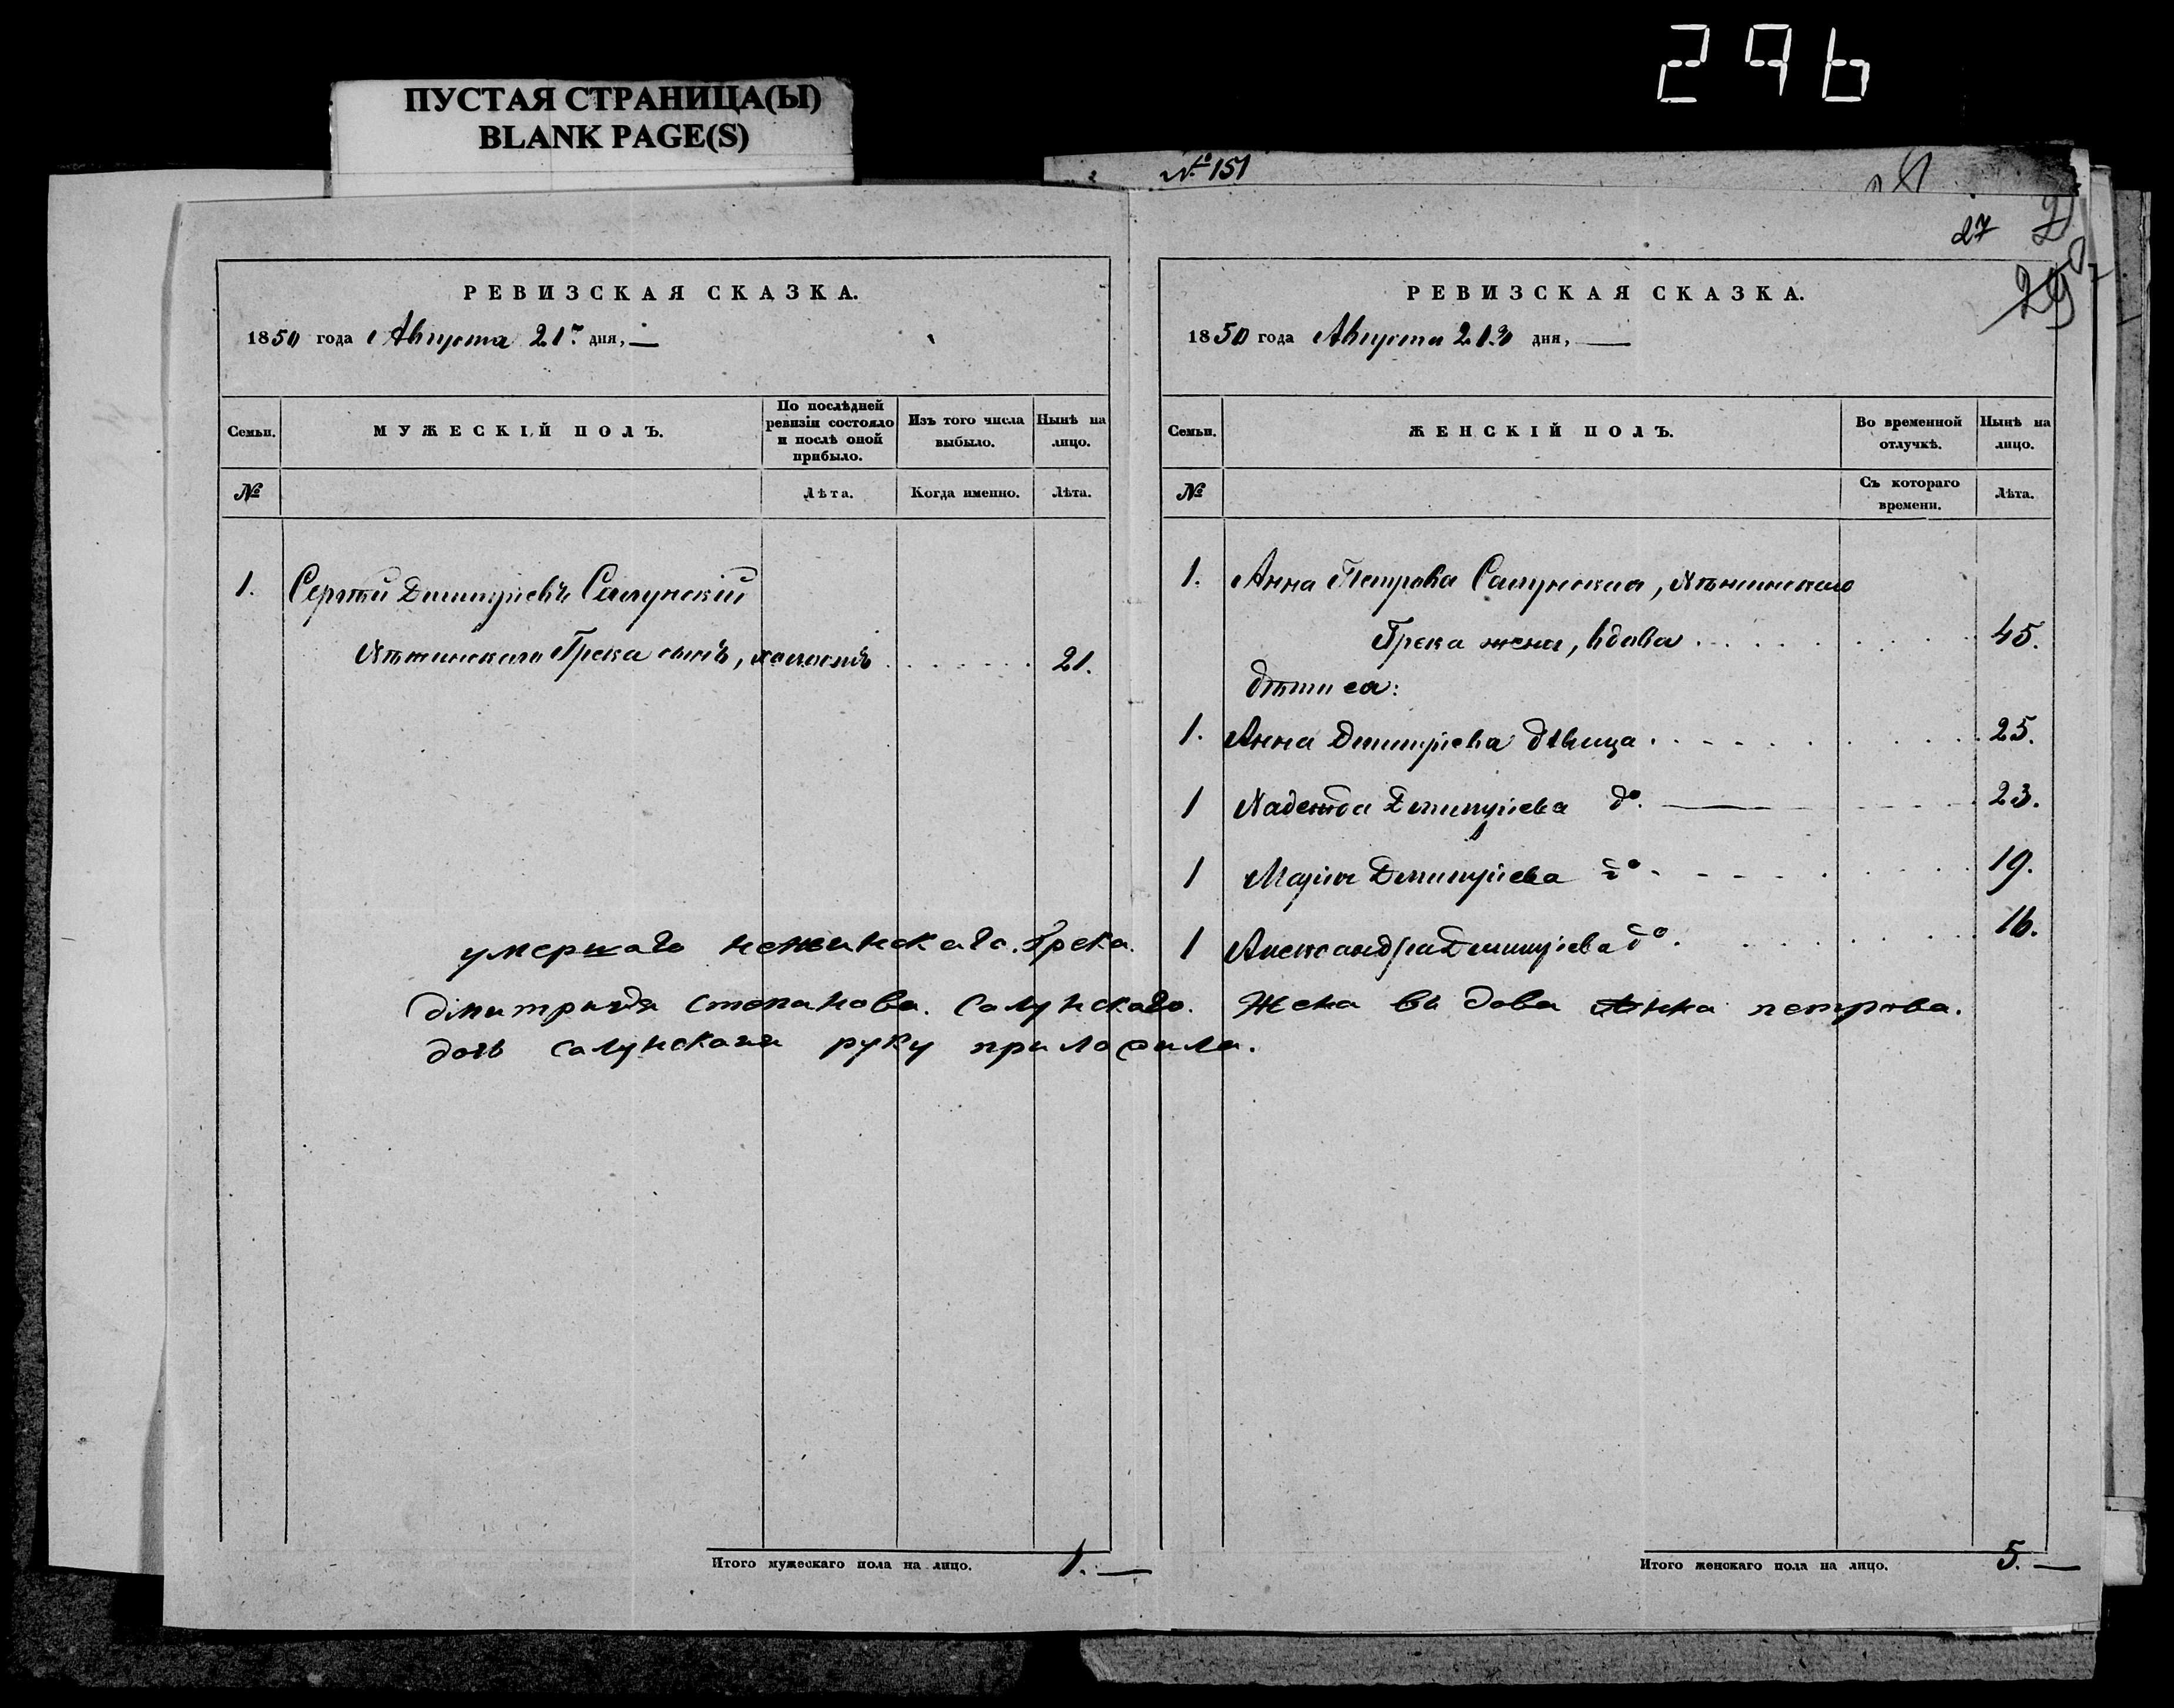 296
ПУСТАЯ СТРАНИЦА(Ы)
BLANK PAGE(S)
№ 151
27
29
РЕВИЗСКАЯ СКАЗКА.
1850 года Августа 21го дня,
Семьи.
МУЖЕСКІЙ ПОЛЪ.
По послѣдней ревизіи состояло и послѣ оной прибыло.
Изъ того числа выбыло.
Нынѣ на лицо.
№
Лѣта.
Когда именно.
Лѣта.
1. Сергѣй Димитріевъ Салунскій
Нѣжинскаго Грека сынъ, холостъ 21.
умершаго неженскаго. Грека.
дмитрыя степанова. Салунскаго. Жена въ дова Анна петрова.
дочь салунскаия руку приложила.
Итого мужескаго пола на лицо. 1.
РЕВИЗСКАЯ СКАЗКА.
1850 года Августа 21го дня,
Семьи.
ЖЕНСКІЙ ПОЛЪ.
Во временной отлучкѣ.
Нынѣ на лицо.
№
Съ котораго времени.
Лѣта.
1. Анна Петрова Салунская, Нѣжинскаго
Грека жена, вдова 45.
дѣти еа:
1. Анна Димитріева дѣвица 25.
1 Надежда Димитріева до. 23.
1 Марія Димитріева до 19.
1 Александра Димитріева до. 16.
Итого женскаго пола на лицо. 5.